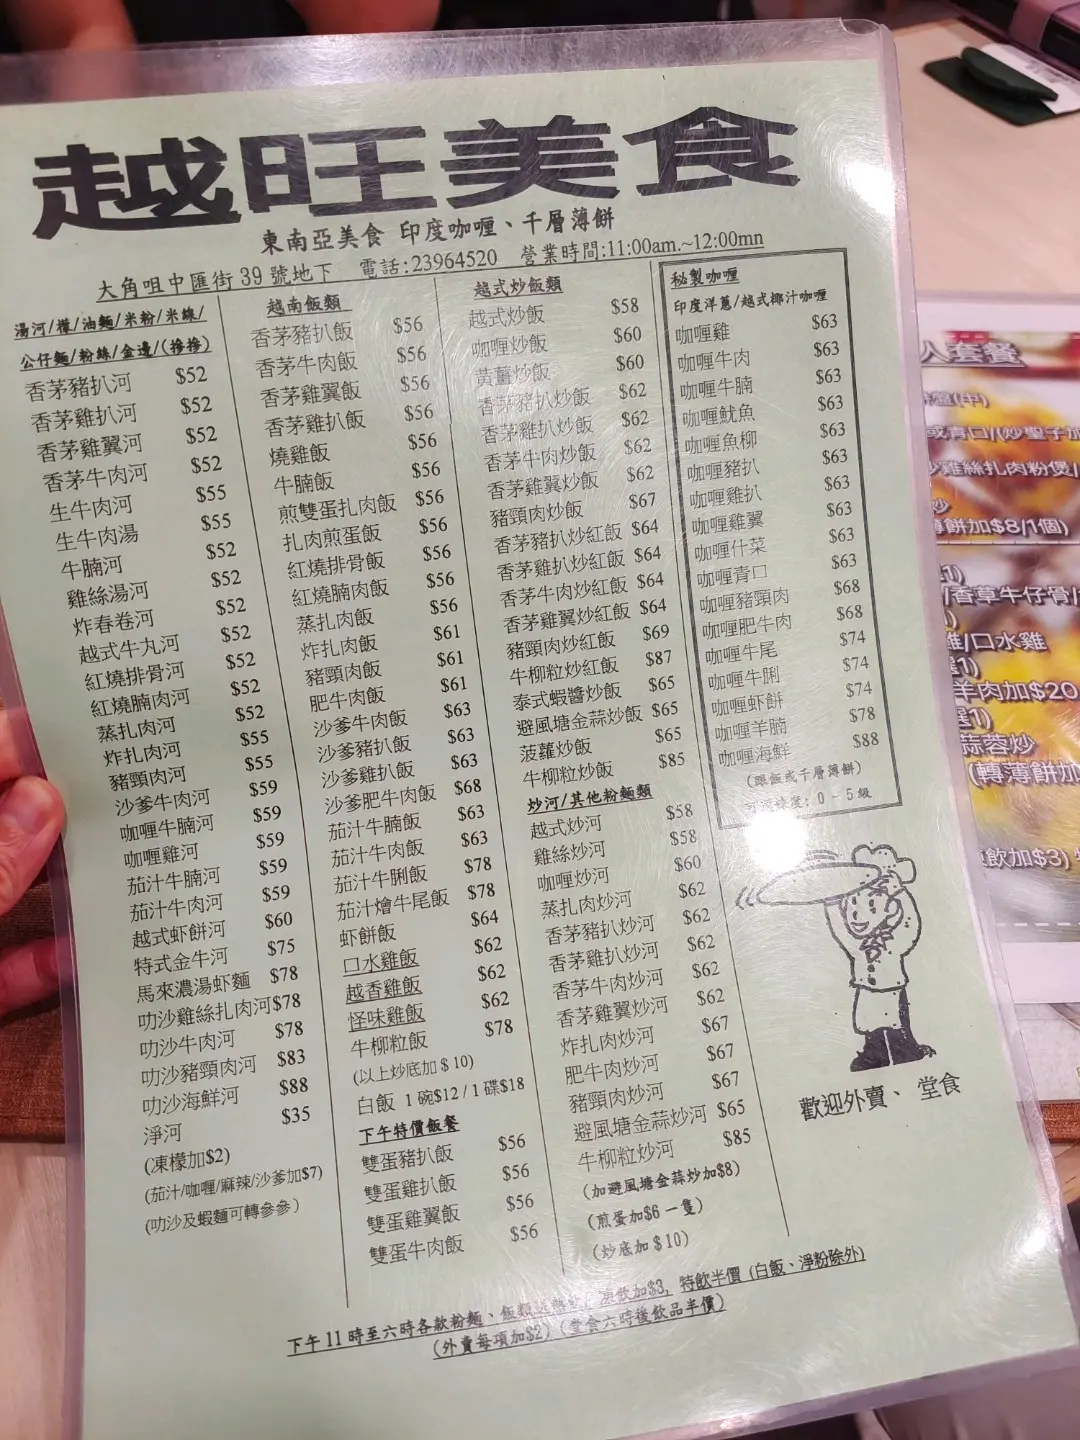 越旺美食
東南亞美食 印度咖喱、千層薄餅
大角咀中匯街 39 號地下 電話:23964520 營業時間:11:00am.~12:00mn
湯河/檬/油麵/米粉/米線/
公仔麵/粉絲/金邊/(摻摻)
香茅豬扒河 $52
香茅雞扒河 $52
香茅雞翼河 $52
香茅牛肉河 $52
生牛肉河 $55
生牛肉湯 $55
牛腩河 $52
雞絲湯河 $52
炸春卷河 $52
越式牛丸河 $52
紅燒排骨河 $52
紅燒腩肉河 $52
蒸扎肉河 $52
炸扎肉河 $55
豬頸肉河 $55
沙爹牛肉河 $59
咖喱牛腩河 $59
咖喱雞河 $59
茄汁牛腩河 $59
茄汁牛肉河 $59
越式虾餅河 $60
特式金牛河 $75
馬來濃湯虾麵 $78
叻沙雞絲扎肉河 $78
叻沙牛肉河 $78
叻沙豬頸肉河 $83
叻沙海鮮河 $88
淨河 $35
(凍檬加$2)
(茄汁/咖喱/麻辣/沙爹加$7)
(叻沙及蝦麵可轉參參)
越南飯類
香茅豬扒飯 $56
香茅牛肉飯 $56
香茅雞翼飯 $56
香茅雞扒飯 $56
燒雞飯 $56
牛腩飯 $56
煎雙蛋扎肉飯 $56
扎肉煎蛋飯 $56
紅燒排骨飯 $56
紅燒腩肉飯 $56
蒸扎肉飯 $56
炸扎肉飯 $61
豬頸肉飯 $61
肥牛肉飯 $61
沙爹牛肉飯 $63
沙爹豬扒飯 $63
沙爹雞扒飯 $63
沙爹肥牛肉飯 $68
茄汁牛腩飯 $63
茄汁牛肉飯 $63
茄汁牛脷飯 $78
茄汁燴牛尾飯 $78
虾餅飯 $64
口水雞飯 $62
越香雞飯 $62
怪味雞飯 $62
牛柳粒飯 $78
(以上炒底加$10)
白飯 1 碗$12 / 1 碟$18
下午特價飯餐
雙蛋豬扒飯 $56
雙蛋雞扒飯 $56
雙蛋雞翼飯 $56
雙蛋牛肉飯 $56
越式炒飯類
越式炒飯 $58
咖喱炒飯 $60
黃薑炒飯 $60
香茅豬扒炒飯 $62
香茅雞扒炒飯 $62
香茅牛肉炒飯 $62
香茅雞翼炒飯 $62
豬頸肉炒飯 $67
香茅豬扒炒紅飯 $64
香茅雞扒炒紅飯 $64
香茅牛肉炒紅飯 $64
香茅雞翼炒紅飯 $64
豬頸肉炒紅飯 $69
牛柳粒炒紅飯 $87
泰式蝦醬炒飯 $65
避風塘金蒜炒飯 $65
菠蘿炒飯 $65
牛柳粒炒飯 $85
炒河/其他粉麵類
越式炒河 $58
雞絲炒河 $58
咖喱炒河 $60
蒸扎肉炒河 $62
香茅豬扒炒河 $62
香茅雞扒炒河 $62
香茅牛肉炒河 $62
香茅雞翼炒河 $62
炸扎肉炒河 $67
肥牛肉炒河 $67
豬頸肉炒河 $67
避風塘金蒜炒河 $65
牛柳粒炒河 $85
(加避風塘金蒜炒加$8)
(煎蛋加$6 一隻)
(炒底加$10)
秘製咖喱
印度洋蔥/越式椰汁咖喱
咖喱雞 $63
咖喱牛肉 $63
咖喱牛腩 $63
咖喱魷魚 $63
咖喱魚柳 $63
咖喱豬扒 $63
咖喱雞扒 $63
咖喱雞翼 $63
咖喱什菜 $63
咖喱青口 $63
咖喱豬頸肉 $68
咖喱肥牛肉 $68
咖喱牛尾 $74
咖喱牛脷 $74
咖喱虾餅 $74
咖喱羊腩 $78
咖喱海鮮 $88
(跟飯或千層薄餅)
0 - 5 級
歡迎外賣、堂食
下午 11 時至六時各款粉麵、飯類 加$3, 特飲半價 (白飯、淨粉除外)
(外賣每項加$2) (堂食六時後飲品半價)
人套餐
(中)
或青口/(炒聖子加
雞絲扎肉粉煲/
炒
薄餅加$8/1個)
1)
/香草牛仔骨/
雞/口水雞
選1)
羊肉加$20
選1)
蒜蓉炒
(轉薄餅加
飲加$3)